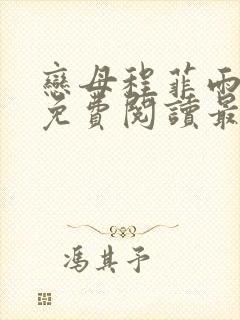 戀母程菲雨
免費閱讀最
馮其予